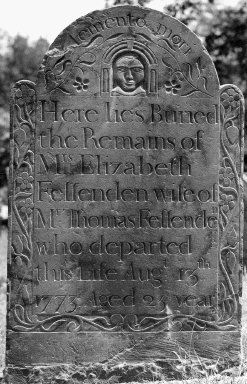 Memento mori
Here lies Buried
the Remains of
Mrs Elizabeth
Feſſenden wife of
Mr Thomas Feſſende
who departed
this Life Augt 13th
1773 Aged 23 year